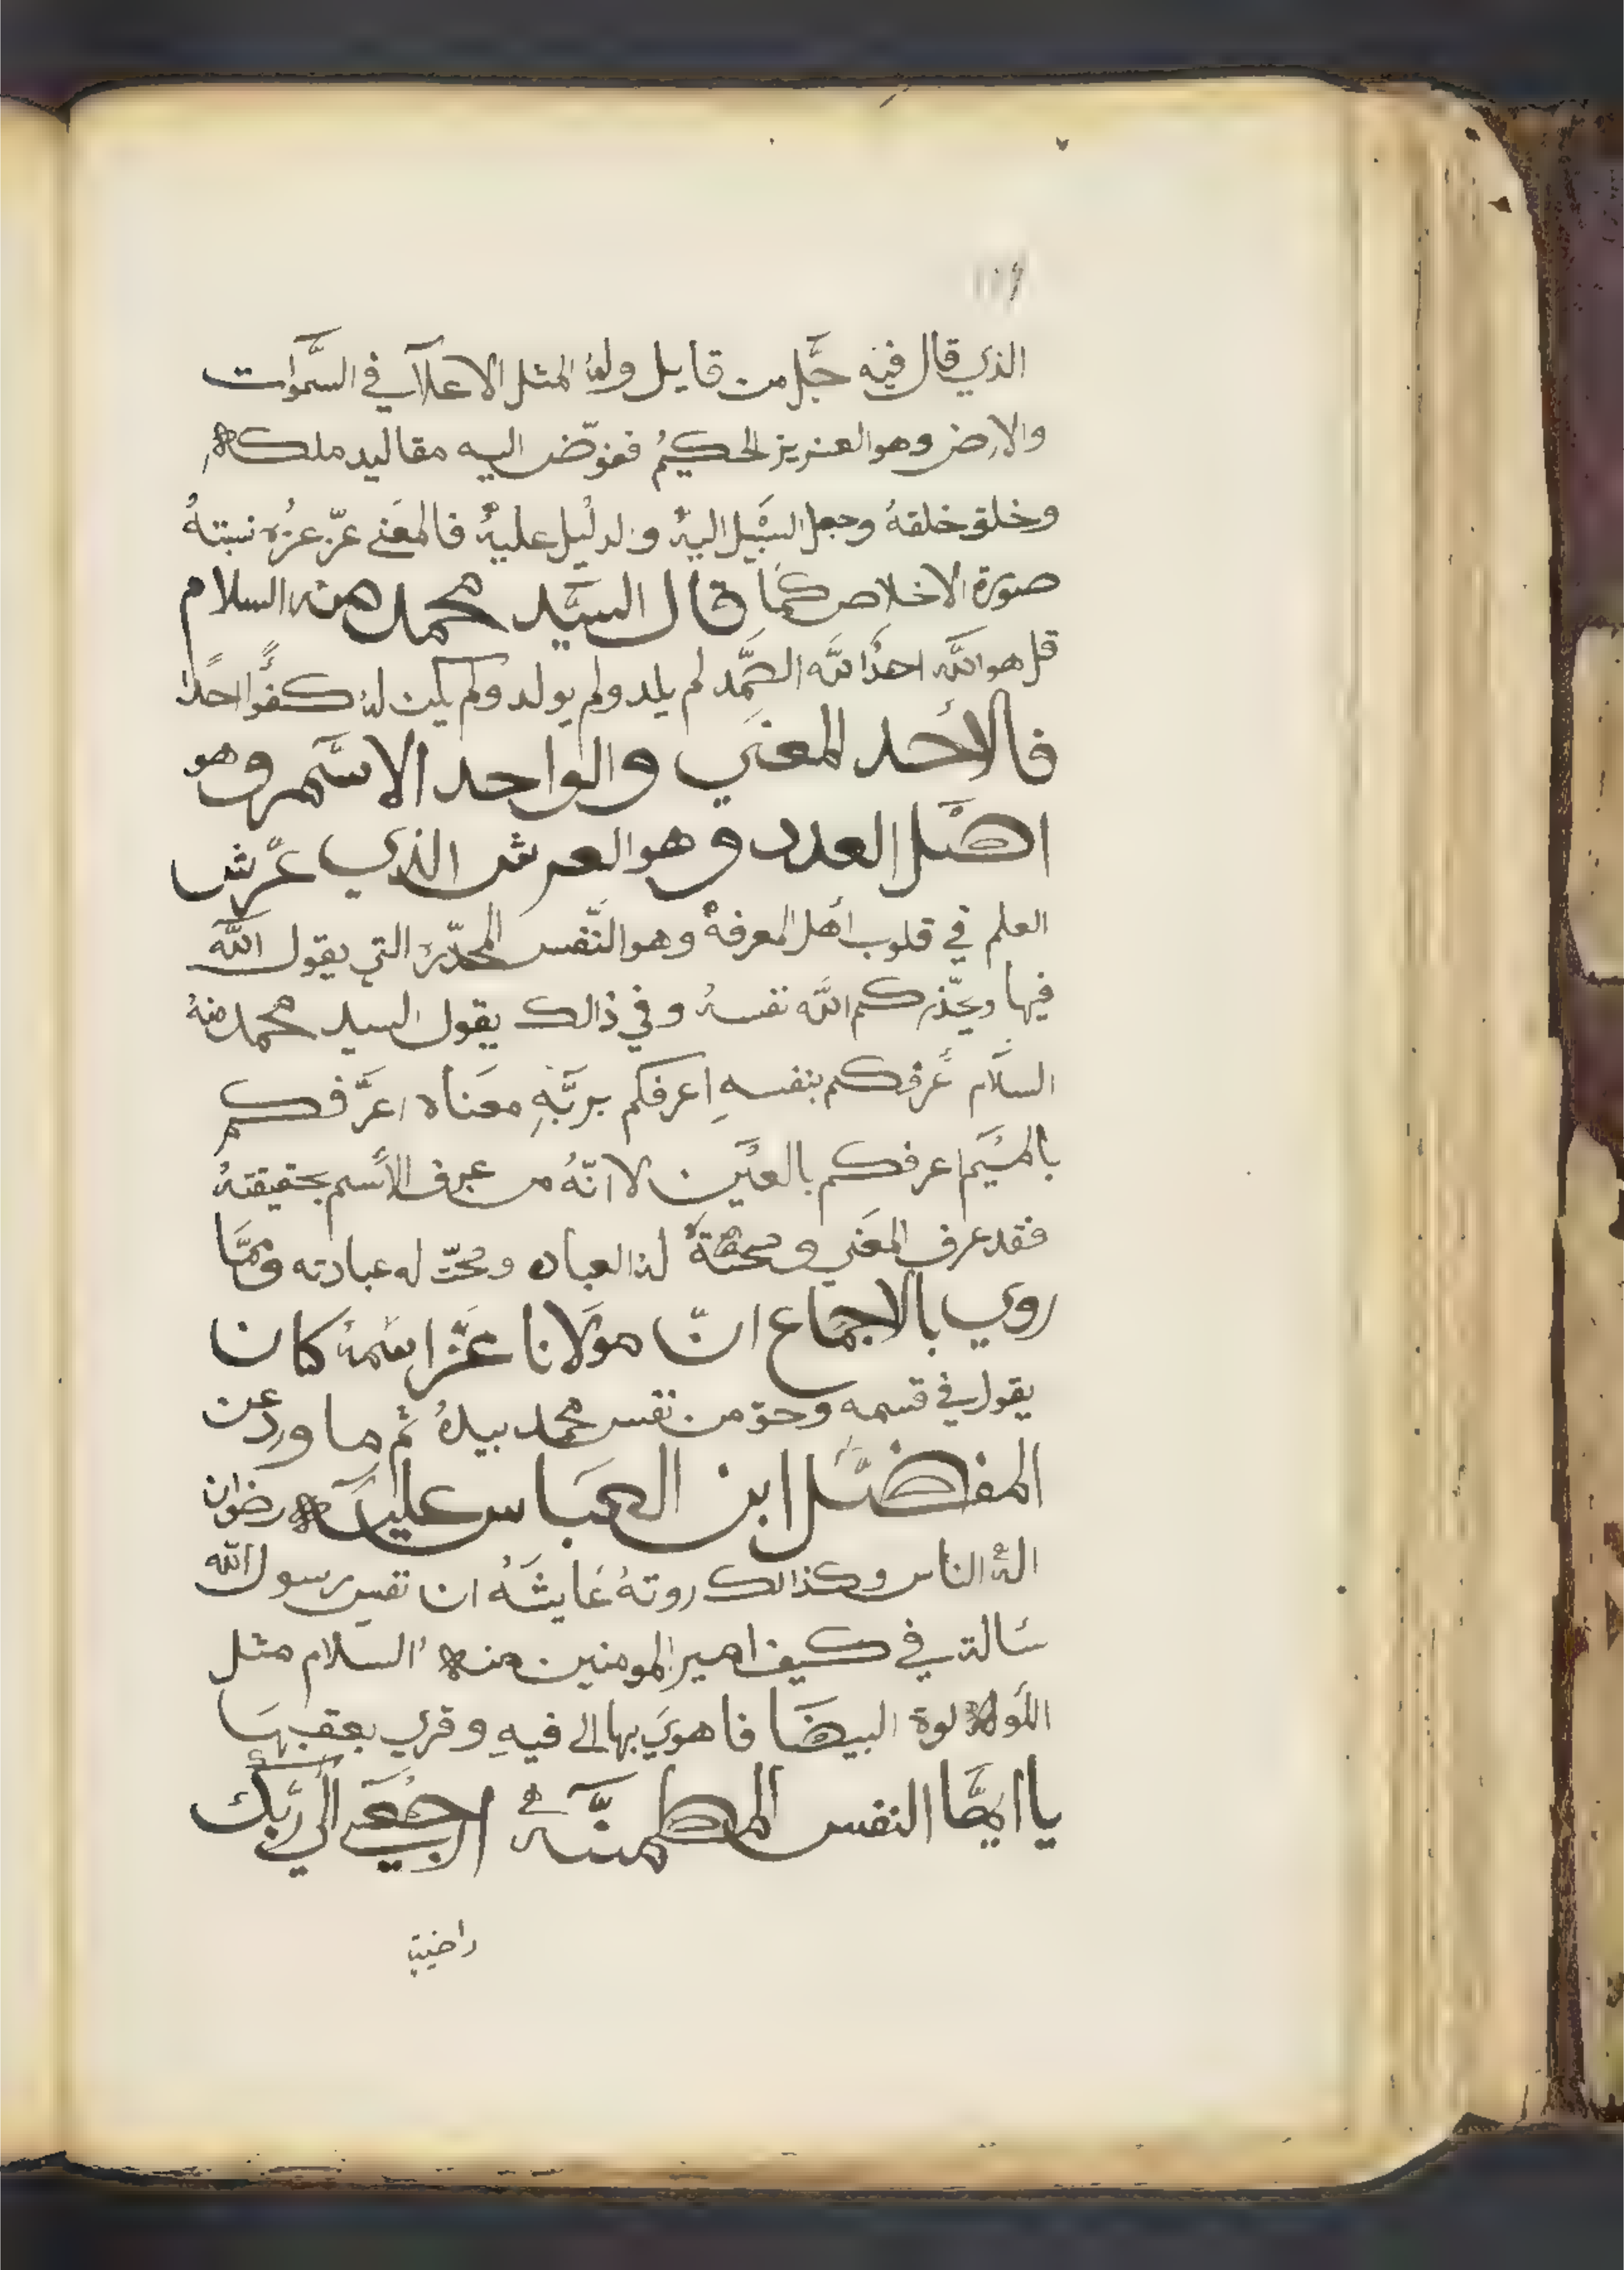 الذي قال فيه جَّل من قايل وله المثل الاعلآ في السَّموات
والارض وهو العزيز الحكيمُ ففوّض اليه مقاليد ملكه
وخلق خلقهُ وجعل السَّبيل اليهْ والدليل عليهْ فالمعَنى عزّ عزُه نسبتهُ
صورة الاخلاص كمَا قال السيَّد محمد منه السلام
قل هو اللَّه احدْ اللَّه الصَّمد لم يلد ولم يولد ولم يكن لهُ كفوًا احدًا
فالأحد المعنَي والواحد الاسَّم وهو
اصَل العدد وهو العرش الذي عرَّش
العلم في قلوب أهل المعرفةْ وهو النَّفس المحذّرة التي يقول اللَّه
فيها ويحّذركم اللَّه نفسهُ وفي ذالك يقول السيد محمد منهُ
السلَام أعَرفكم بنفسهِ اعرفكم بربَّهِ معنَاه اعرَّفكم
بالميَم اعرفكم بالعيَن لاانّهُ من عرف الأسم بحقيقتهُ
فقد عرف المعَني له عبادته وممَّا
روي بالاجمَاع انّ موَلانا عَّز اسمهُ كان
يقول في قسمه وحق من نفس محمد بيدهُ ثم ما ورد عن
المفضَّل ابن العبَاس عليَه رضوان
الهْ الناس وكذالك روتهُ عَايشَهُ ان نفس رسول اللَّه
سَالة في كيف امير المومنين منه السلام مثل
البيضَا فاهويَ بها الى فيهِ وقري بعقبهَا
يا ايهَّا النفس المطمنَّه ارجعَي الَي ربَّك
راضية